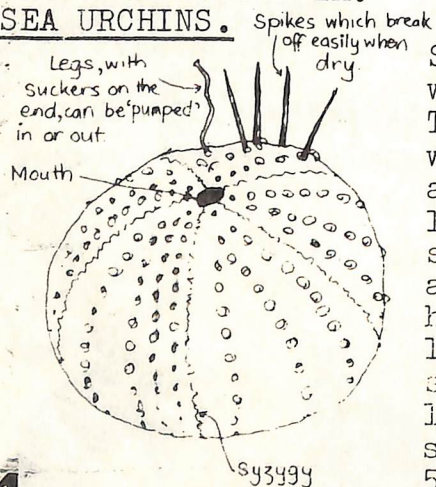 SEA URCHINS.
Spikes which break
off easily when
dry.
Legs, with
suckers on the
end, can be 'pumped'
in or out.
Mouth
Syzygy